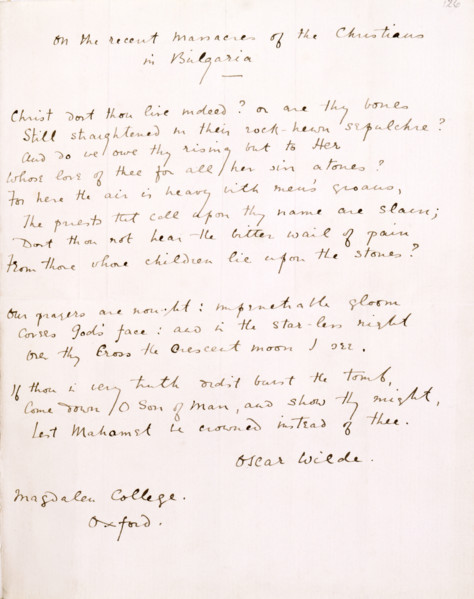 126
On the recent Massacres of the Christians
in Bulgaria
Christ dost thou live indeed? or are thy bones
Still straightened in their rock-hewn sepulchre?
And do we owe thy rising but to Her
Whose love of thee for all her sin atones?
For here the air is heavy with men's groans,
The priests that call upon thy name are slain;
Dost thou not hear the bitter wail of pain
From those whose children lie upon the stones?
Our prayers are nought: impenetrable gloom
Covers God's face: and in the star-less night
Over thy Cross the Crescent moon I see.
If thou in very truth didst burst the tomb,
Come down, O Son of Man, and show thy might,
Lest Mahomet be crowned instead of thee.
Oscar Wilde.
Magdalen College.
Oxford.